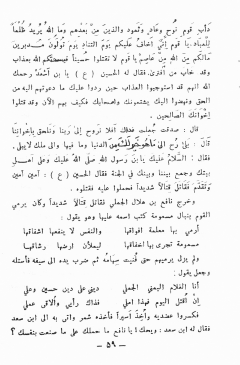 دأب قوم نوح وعاد وثمود والذين من بعدهم وما الله يريد ظلما
للعباد. يا قوم إني أخاف عليكم يوم التناد يوم تولون مدبرين
مالكم من الله من عاصم يا قوم لا تقتلوا حسينا فيسحتكم الله بعذاب
وقد خاب من افترى. فقال له الحسين (ع) يا بن أسعد رحمك
الله انهم قد استوجبوا العذاب حين ردوا عليك ما دعوتهم اليه من
الحق ونهضوا اليك يشتمونك وأصحابك فكيف بهم الآن وقد قتلوا
أخوانك الصالحين.
قال: صدقت جعلت فداك أفلا نروح إلى ربنا ونلحق بإخواننا
قال: بلى رح الى ما هو خير لك من الدنيا وما فيها والى ملك لا يبلى.
فقال: السلام عليك يا بن رسول الله صلى الله عليك وعلى أهل
بيتك وجمع بيننا وبينك في الجنة فقال الحسين (ع): آمين آمين
وتقدم فقاتل قتالا شديدا فحملوا عليه فقتلوه.
وخرج نافع بن هلال الجملي فقاتل قتالاً شديداً وكان يرمي
القوم بنبال مسمومة كتب اسمه عليها وهو يقول:
أرمي بها معلمة افواقها والنفس لا ينفعها اشفاقها
مسمومة تجري بها اخفاقها ليملأن ارضها رشاقها
ولم يزل يرميهم حتى فنيت سهامه ثم ضرب يده الى سيفه فأستله
وجعل يقول:
أنا الغلام اليمني الجملي ديني على دين حسين وعلي
إن أقتل اليوم فهذا املي فذاك رأيي وألاقي عملي
فكسروا عضديه وأخذ أسيراً فأخذه شمر وأتى به الى ابن سعد
فقال له ابن سعد: ويحك! يا نافع ما حملك على ما صنعت بنفسك؟
— ٥٩ —